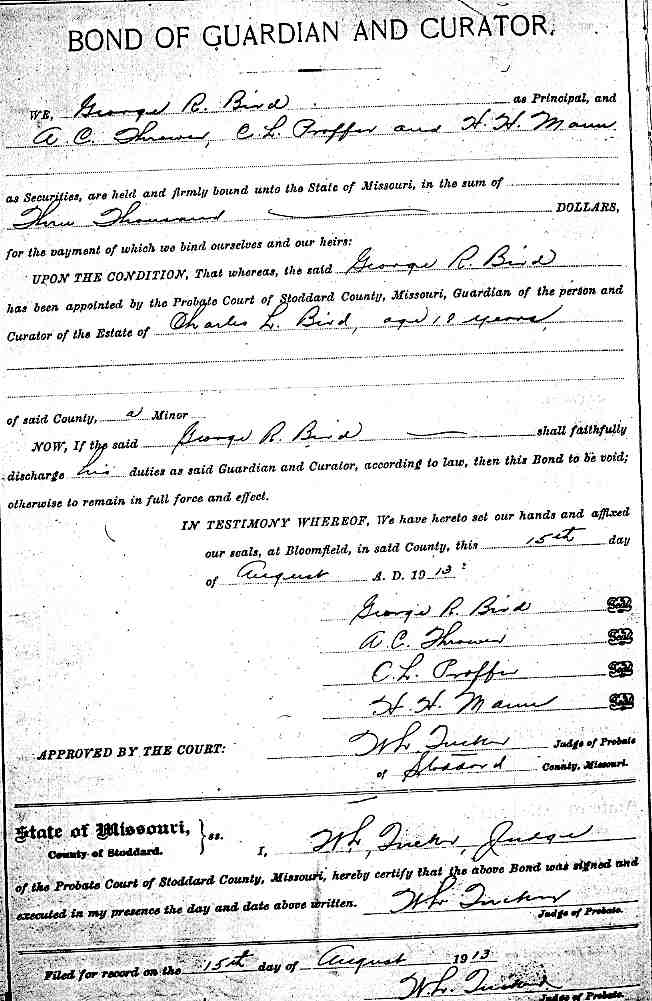 BOND OF GUARDIAN AND CURATOR.
WE, George R. Bird as Principal, and
A. C. Thrower, C. L. Proffer and H. H. Mann
as Securities, are held and firmly bound unto the State of Missouri, in the sum of
Three Thousand DOLLARS,
for the payment of which we bind ourselves and our heirs:
UPON THE CONDITION, That whereas, the said George R. Bird
has been appointed by the Probate Court of Stoddard County, Missouri, Guardian of the person and
Curator of the Estate of Charles L. Bird, age years
of said County, a Minor
NOW, If the said George R. Bird shall faithfully
discharge his duties as said Guardian and Curator, according to law, then this Bond to be void;
otherwise to remain in full force and effect.
IN TESTIMONY WHEREOF, We have hereto set our hands and affixed
our seals, at Bloomfield, in said County, this 15th day
of August A. D. 1913
George R. Bird Seal
A. C. Thrower Seal
C. L. Proffer Seal
H. H. Mann Seal
APPROVED BY THE COURT: W L Tucker Judge of Probate
of Stoddard County, Missouri.
State of Missouri, } ss.
County of Stoddard. I, W L Tucker, Judge
of the Probate Court of Stoddard County, Missouri, hereby certify that the above Bond was signed and
executed in my presence the day and date above written. W L Tucker
Judge of Probate.
Filed for record on the 15th day of August 1913
W. L. Tucker
Judge of Probate.